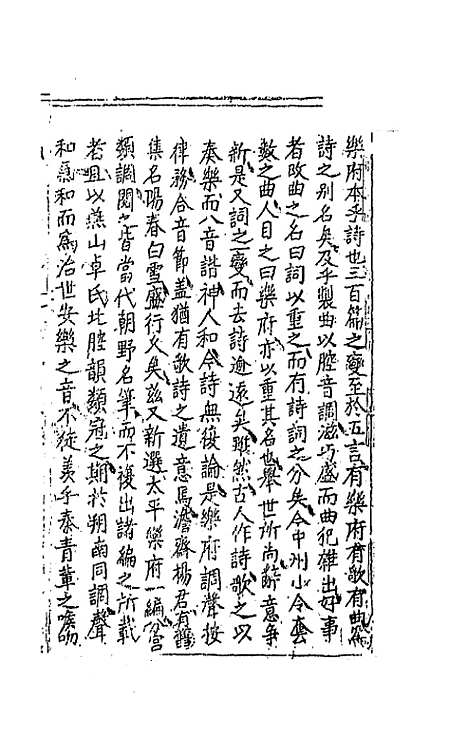 樂府本乎詩也三百篇之變至於五言有樂府有歌有曲為
詩之別名矣及乎製曲以腔音調滋巧盛而曲犯雜出好事
者改曲之名曰詞以重之而有詩詞之分矣今中州小令套
數之曲人目之曰樂府亦以重其名也舉世所尚辭意爭
新是又詞之變而去詩逾遠矣雖然古人作詩歌之以
奏樂而八音諧神人和今詩無復論是樂府調聲按
律務合音節盖猶有歌詩之遺意焉澹齋楊君有舊
集名陽春白雪盛行久矣兹又新選太平樂府一編分宮
類調閱之皆當代朝野名筆而不復出諸編之所載
者且以燕山卓氏北腔韻類冠之期於朔南同調聲
和氣和而爲治世安樂之音不徒羡乎秦青輩之喉吻